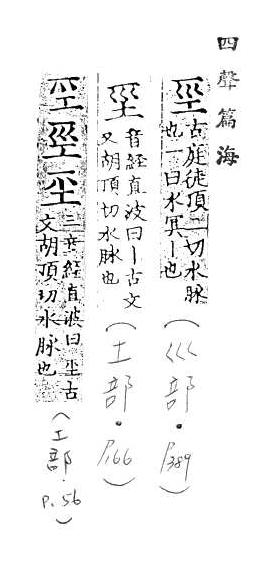 四聲篇海
巠 古庭徒頂二切水脉
也一曰水冥丨也
(巛部・P389)
音經直波曰丨古文
又胡頂切水脉也
(土部・P.166)
巠 三音經直波曰坙古
文胡頂切水脉也
(工部・P.56)